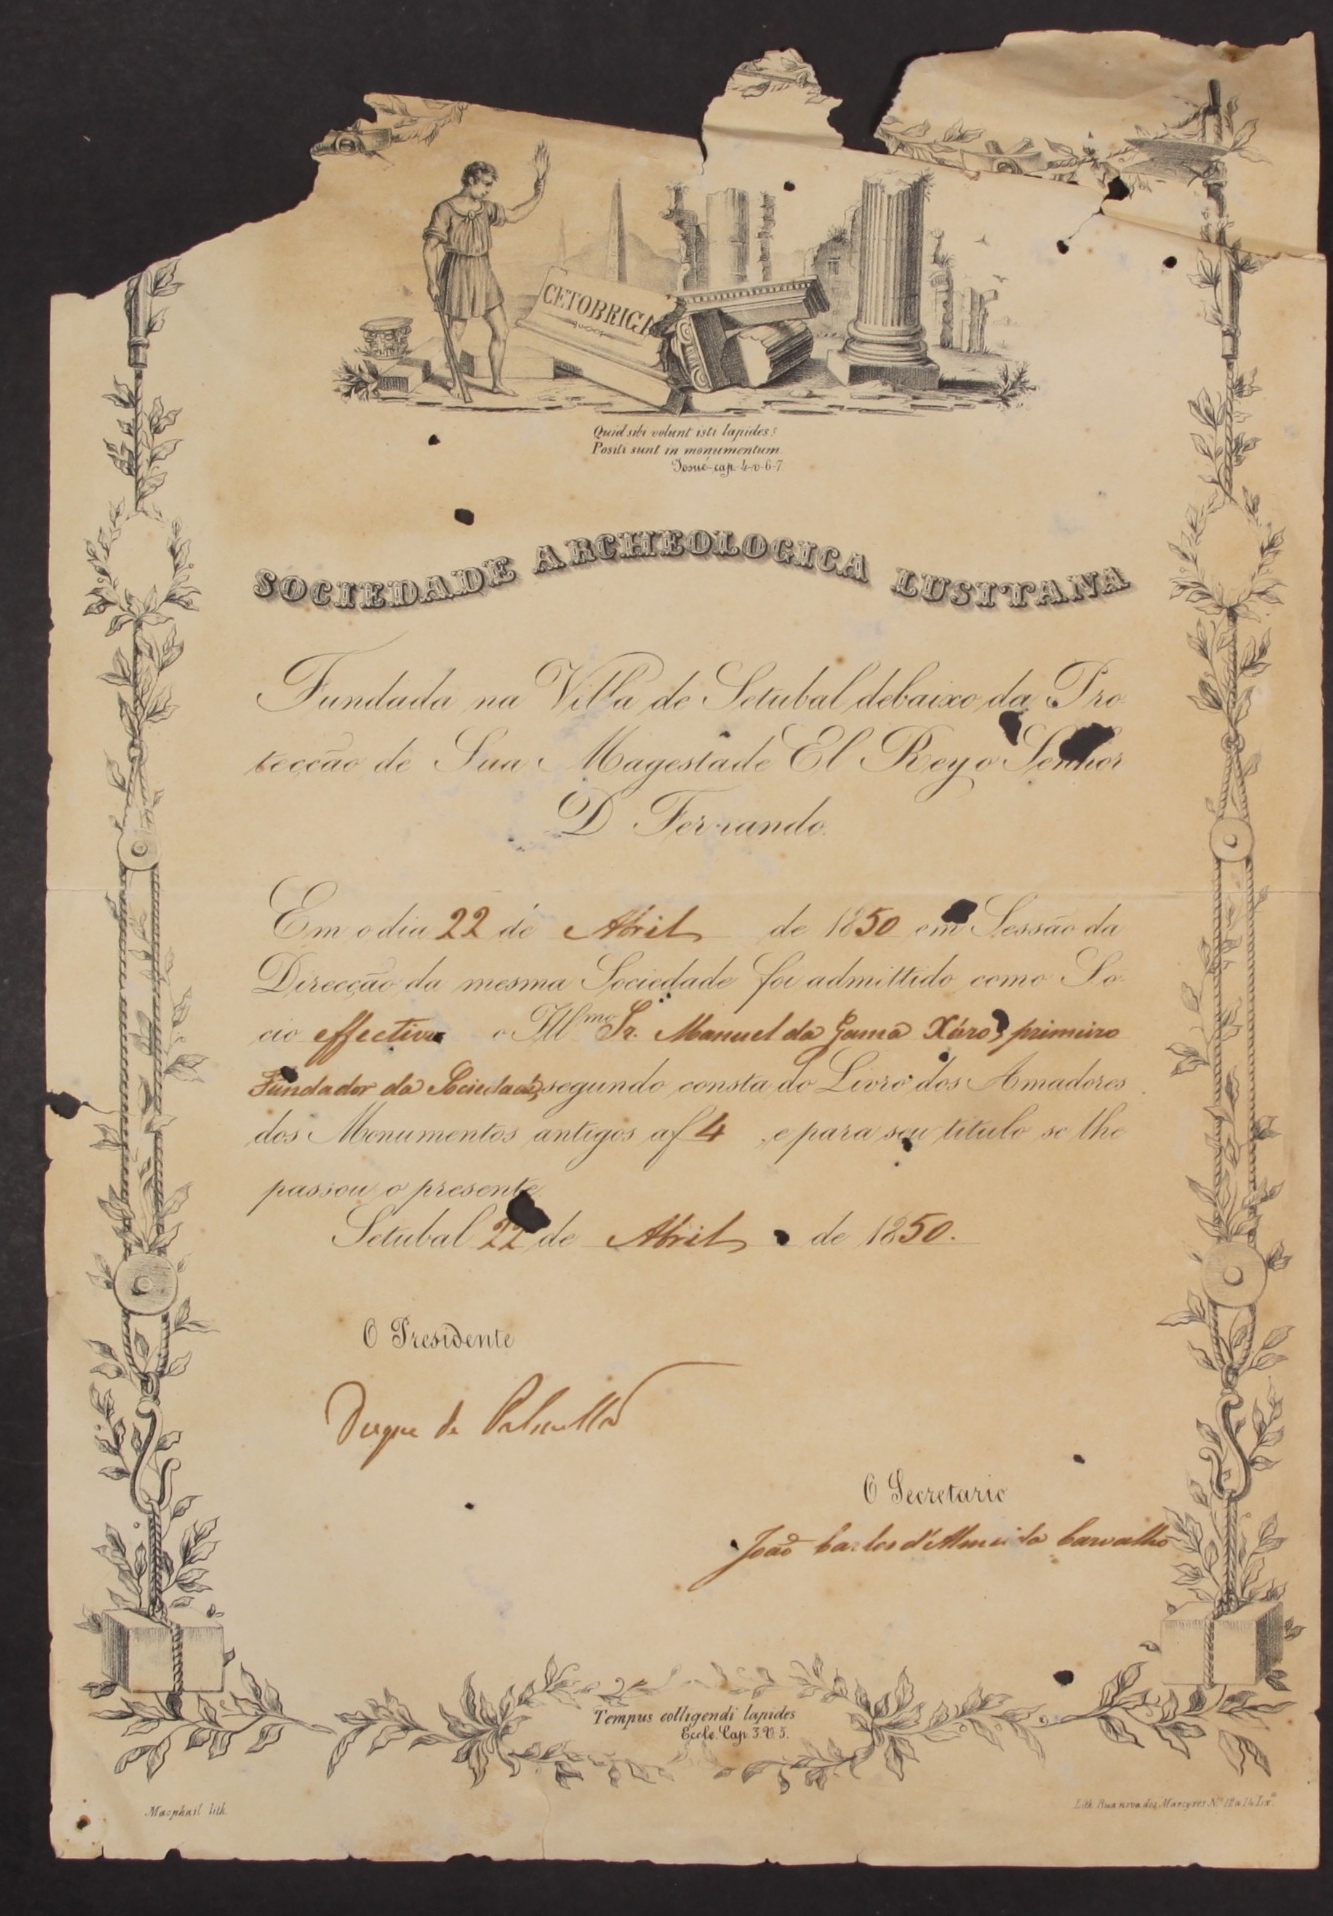 CETOBRIGA
Quid sibi volunt isti lapides?
Positi sunt in monumentum.
Josué-cap-4-v-6-7
SOCIEDADE ARCHEOLOGICA LUSITANA
Fundada na Villa de Setubal debaixo da Pro
tecção de Sua Magestade El Rey o Senhor
D Fernando.
Em o dia 22 de Abril de 1850 em Sessão da
Direcção da mesma Sociedade foi admittido como So-
cio effectivo o Ill.mo Sr. Manuel da Gama Xáro, primeiro
Fundador da Sociedade, segundo consta do Livro dos Amadores
dos Monumentos antigos af 4, e para seu titulo se lhe
passou o presente.
Setubal 22 de Abril de 1850.
O Presidente
Duque de Palmella
O Secretario
João Carlos d'Almeida Carvalho
Tempus colligendi lapides
Eccle. Cap. 3. V. 5.
Macphail lith.
Lith. Rua nova dos Martyres Nos 12 a 14 Lxa